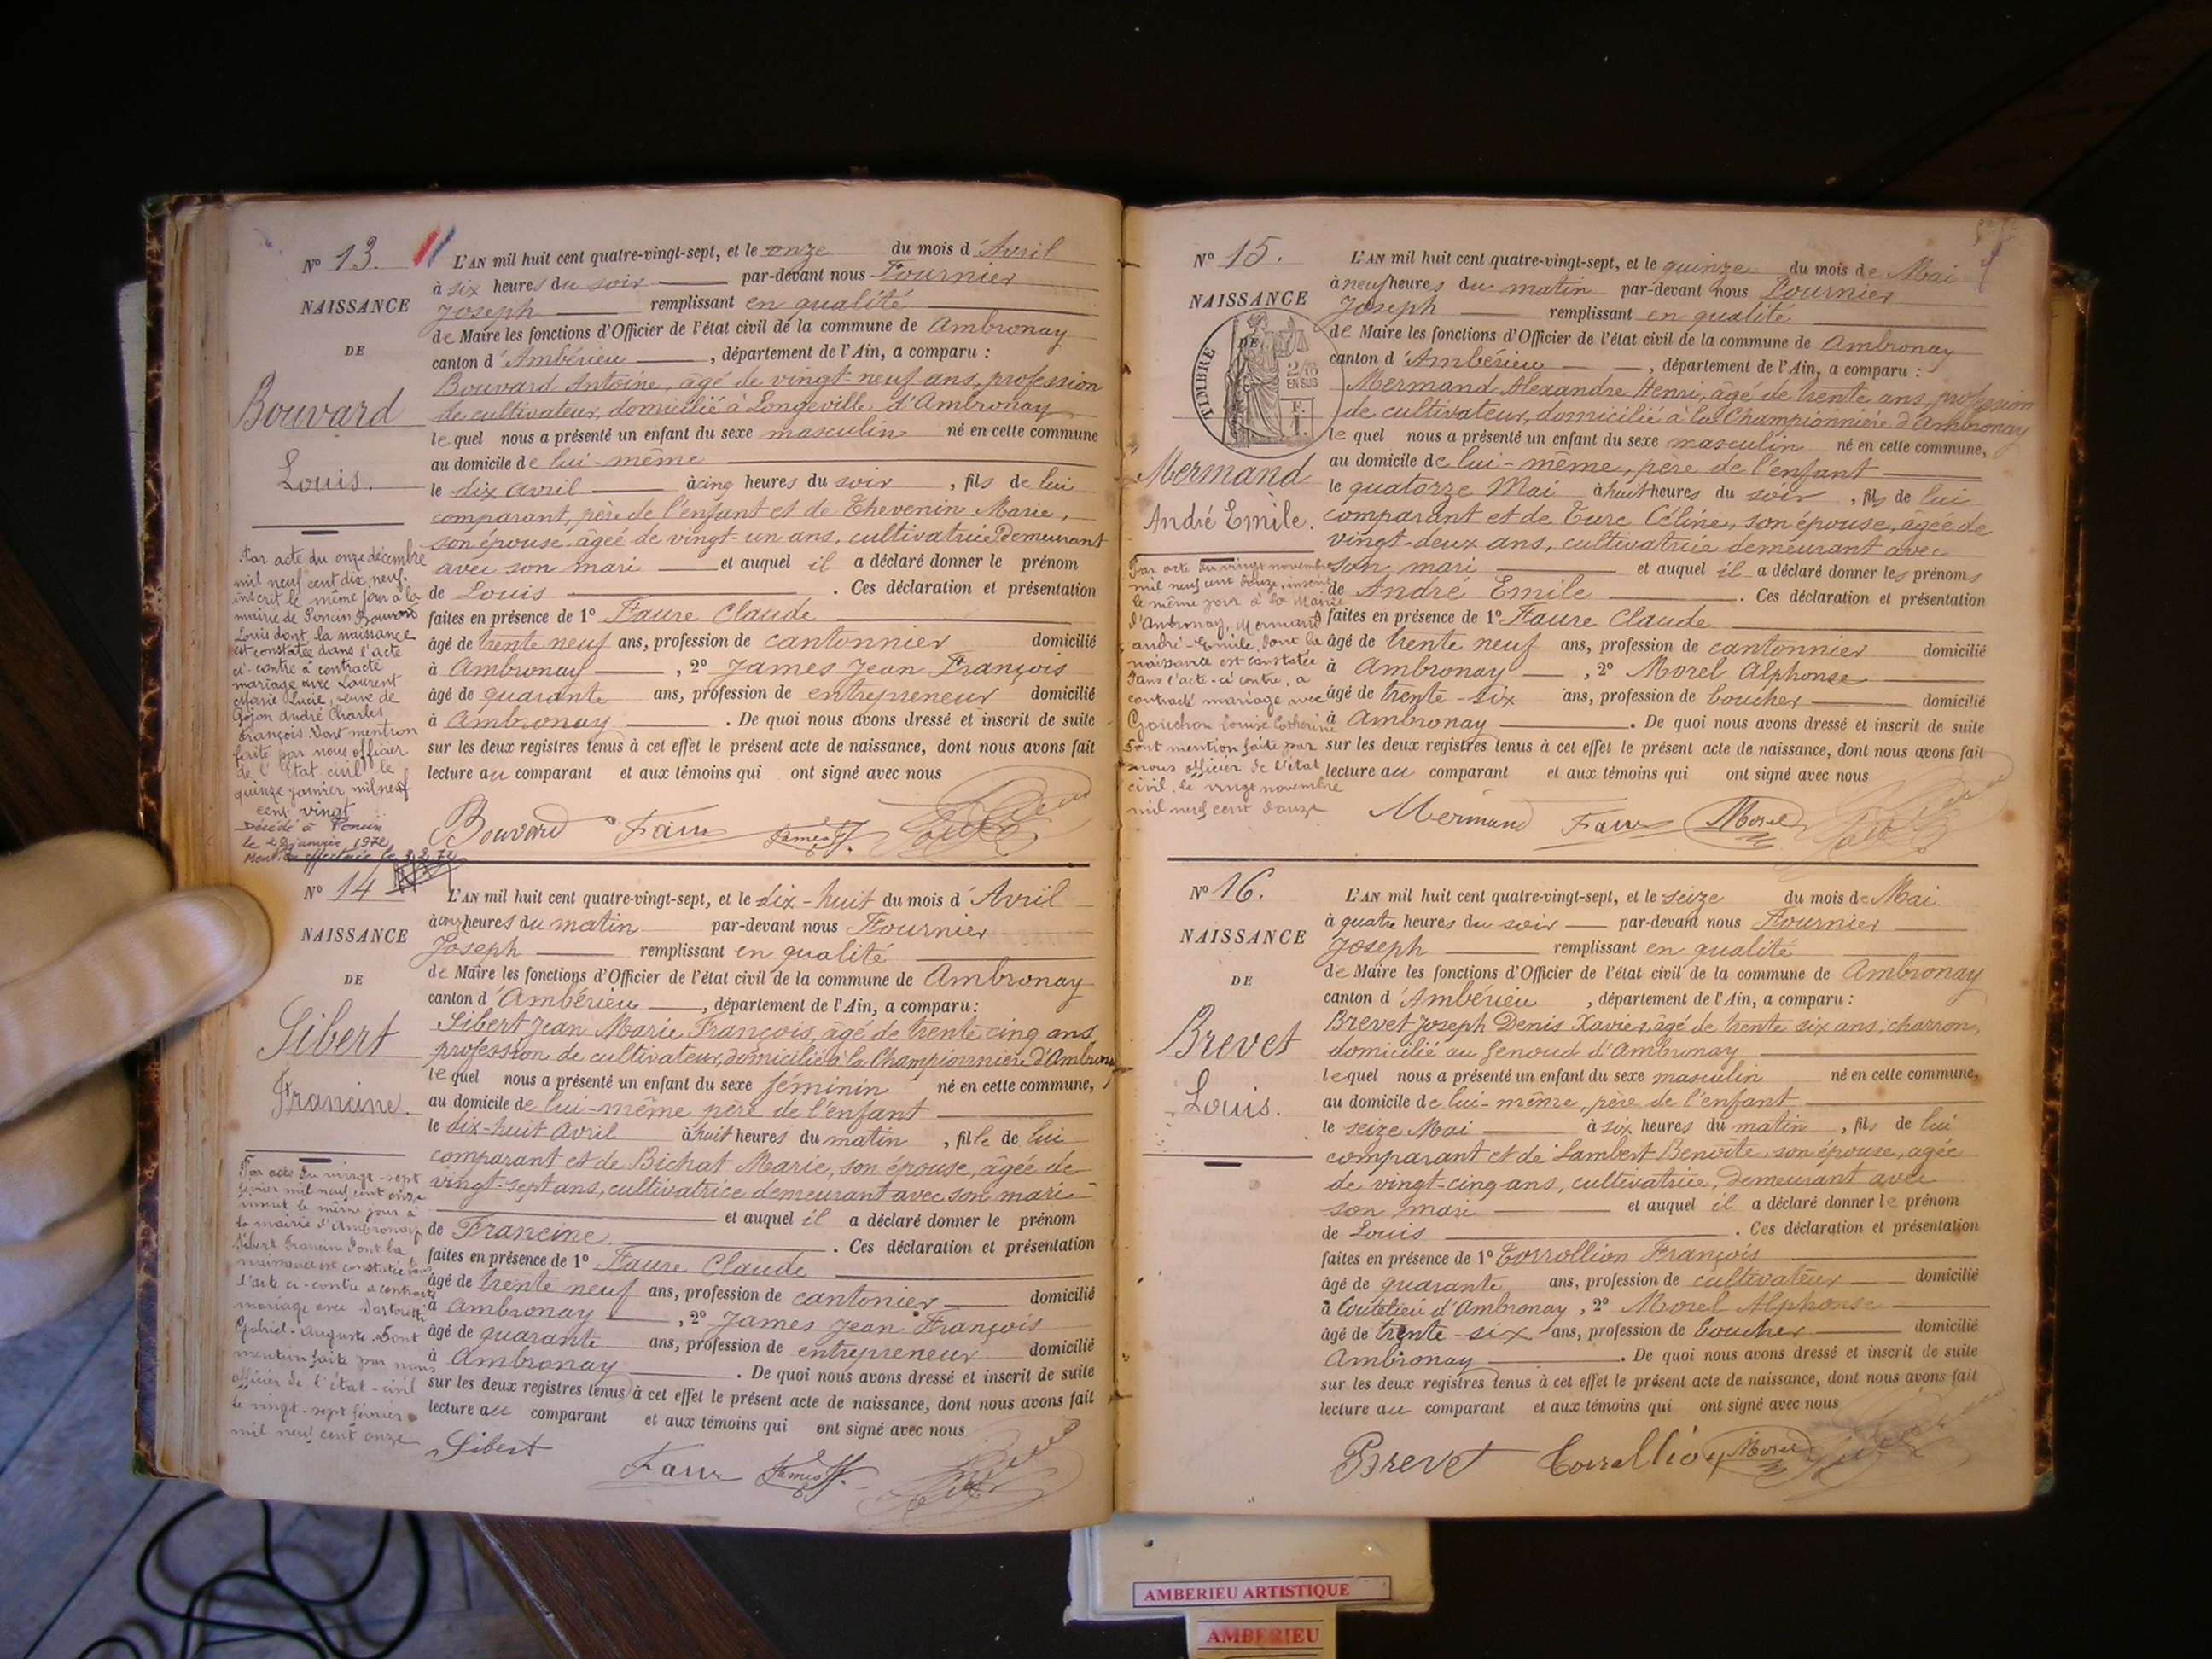 N° 13.
NAISSANCE
DE
Bouvard
Louis.
L'AN mil huit cent quatre-vingt-sept, et le onze du mois d'Avril
à six heures du soir par-devant nous Fournier
Joseph remplissant en qualité
de Maire les fonctions d'Officier de l'état civil de la commune de Ambronay
canton d'Ambérieu, département de l'Ain, a comparu :
Bouvard Antoine, âgé de vingt-neuf ans, profession
de cultivateur, domicilié à Longeville d'Ambronay
lequel nous a présenté un enfant du sexe masculin né en cette commune
au domicile de lui-même
le dix avril à cinq heures du soir, fils de lui
comparant, père de l'enfant et de Thevenin Marie,
son épouse, âgée de vingt-un ans, cultivatrice demeurant
avec son mari et auquel il a déclaré donner le prénom
de Louis. Ces déclaration et présentation
faites en présence de 1° Faure Claude
âgé de trente neuf ans, profession de cantonnier domicilié
à Ambronay, 2° James Jean François
âgé de quarante ans, profession de entrepreneur domicilié
à Ambronay. De quoi nous avons dressé et inscrit de suite
sur les deux registres tenus à cet effet le présent acte de naissance, dont nous avons fait
lecture au comparant et aux témoins qui ont signé avec nous
Bouvard Faure James Jf.
Par acte du onze décembre
mil neuf cent dix neuf.
inscrit le même jour à la
mairie de Poncin Bouvard
Louis dont la naissance
est constatée dans l'acte
ci-contre à contracté
mariage avec Laurent
Marie Lucie, veuve de
Gojon André Charles
François. Dont mention
faite par nous officier
de l'Etat civil le
quinze janvier mil neuf
cent vingt
Décédé à Poncin
le 29 janvier 1972
N° 14
NAISSANCE
DE
Sibert
Francine.
L'AN mil huit cent quatre-vingt-sept, et le dix-huit du mois d'Avril
à onze heures du matin par-devant nous Fournier
Joseph remplissant en qualité
de Maire les fonctions d'Officier de l'état civil de la commune de Ambronay
canton d'Ambérieu, département de l'Ain, a comparu :
Sibert Jean Marie François, âgé de trente cinq ans
profession de cultivateur, domicilié à la Championnière d'Ambronay
lequel nous a présenté un enfant du sexe féminin né en cette commune,
au domicile de lui-même père de l'enfant
le dix-huit Avril à huit heures du matin, fille de lui
comparant et de Bichat Marie, son épouse, âgée de
vingt-sept ans, cultivatrice demeurant avec son mari
et auquel il a déclaré donner le prénom
de Francine. Ces déclaration et présentation
faites en présence de 1° Faure Claude
âgé de trente neuf ans, profession de cantonier domicilié
à Ambronay, 2° James Jean François
âgé de quarante ans, profession de entrepreneur domicilié
à Ambronay. De quoi nous avons dressé et inscrit de suite
sur les deux registres tenus à cet effet le présent acte de naissance, dont nous avons fait
lecture au comparant et aux témoins qui ont signé avec nous
Sibert Faure James Jf.
Par acte du vingt-sept
février mil neuf cent onze
inscrit le même jour à
la mairie d'Ambronay
Sibert Francine dont la
naissance est constatée dans
l'acte ci-contre a contracté
mariage avec
Gabriel-Auguste. Dont
mention faite par nous
officier de l'état-civil
le vingt-sept février
mil neuf cent onze
N° 15.
NAISSANCE
DE
TIMBRE
2/10
EN SUS
Mermand
André Emile.
L'AN mil huit cent quatre-vingt-sept, et le quinze du mois de Mai
à neuf heures du matin par-devant nous Fournier
Joseph remplissant en qualité
de Maire les fonctions d'Officier de l'état civil de la commune de Ambronay
canton d'Ambérieu, département de l'Ain, a comparu :
Mermand Alexandre Henri, âgé de trente ans, profession
de cultivateur, domicilié à la Championnière d'Ambronay
lequel nous a présenté un enfant du sexe masculin né en cette commune,
au domicile de lui-même, père de l'enfant
le quatorze Mai à huit heures du soir, fils de lui
comparant et de Turc Céline, son épouse, âgée de
vingt-deux ans, cultivatrice demeurant avec
son mari et auquel il a déclaré donner les prénoms
de André Emile. Ces déclaration et présentation
faites en présence de 1° Faure Claude
âgé de trente neuf ans, profession de cantonnier domicilié
à Ambronay, 2° Morel Alphonse
âgé de trente-six ans, profession de boucher domicilié
à Ambronay. De quoi nous avons dressé et inscrit de suite
sur les deux registres tenus à cet effet le présent acte de naissance, dont nous avons fait
lecture au comparant et aux témoins qui ont signé avec nous
Mermand Faure Morel
Par acte du vingt novembre
mil neuf cent douze, inscrit
le même jour à la Mairie
d'Ambronay, Mermand
André-Emile, dont la
naissance est constatée
dans l'acte-ci contre, a
contracté mariage avec
Gouchon Louise Catherine
Dont mention faite par
nous officier de l'état
civil, le vingt novembre
mil neuf cent douze
N° 16.
NAISSANCE
DE
Brevet
Louis.
L'AN mil huit cent quatre-vingt-sept, et le seize du mois de Mai.
à quatre heures du soir par-devant nous Fournier
Joseph remplissant en qualité
de Maire les fonctions d'Officier de l'état civil de la commune de Ambronay
canton d'Ambérieu, département de l'Ain, a comparu :
Brevet Joseph Denis Xavier, âgé de trente six ans, charron,
domicilié au Genoud d'Ambronay
lequel nous a présenté un enfant du sexe masculin né en cette commune,
au domicile de lui-même, père de l'enfant
le seize Mai à six heures du matin, fils de lui
comparant et de Lambert Benoîte, son épouse, âgée
de vingt-cinq ans, cultivatrice, demeurant avec
son mari et auquel il a déclaré donner le prénom
de Louis. Ces déclaration et présentation
faites en présence de 1° Torrollion François
âgé de quarante ans, profession de cultivateur domicilié
à Coutelieu d'Ambronay, 2° Morel Alphonse
âgé de trente-six ans, profession de boucher domicilié
Ambronay. De quoi nous avons dressé et inscrit de suite
sur les deux registres tenus à cet effet le présent acte de naissance, dont nous avons fait
lecture au comparant et aux témoins qui ont signé avec nous
Brevet Morel
AMBERIEU ARTISTIQUE
AMBERIEU